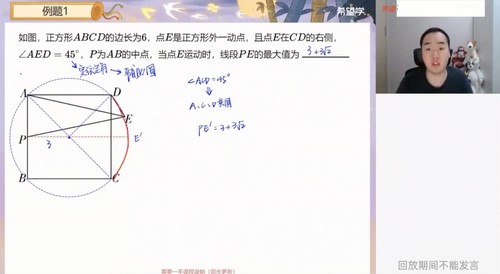 例题1
希望学
如图，正方形ABCD的边长为6，点E是正方形外一动点，且点E在CD的右侧，
∠AED = 45°，P为AB的中点，当点E运动时，线段PE的最大值为 3+3√2
定弦定角 → 辅助圆
∠AED=45°
⇓
PE'=3+3√2
A
D
E
P
3
E'
B
C
回放期间不能发言